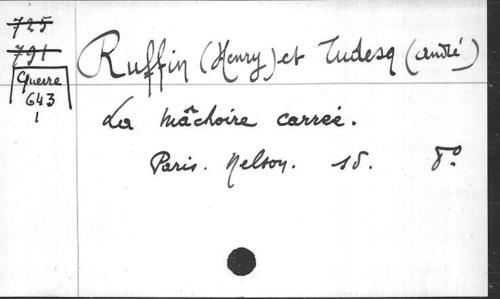 725
791
Guerre
643
1
Ruffin (Henry) et Tudesq (André)
La mâchoire carrée.
Paris. Nelson. sd. 8°